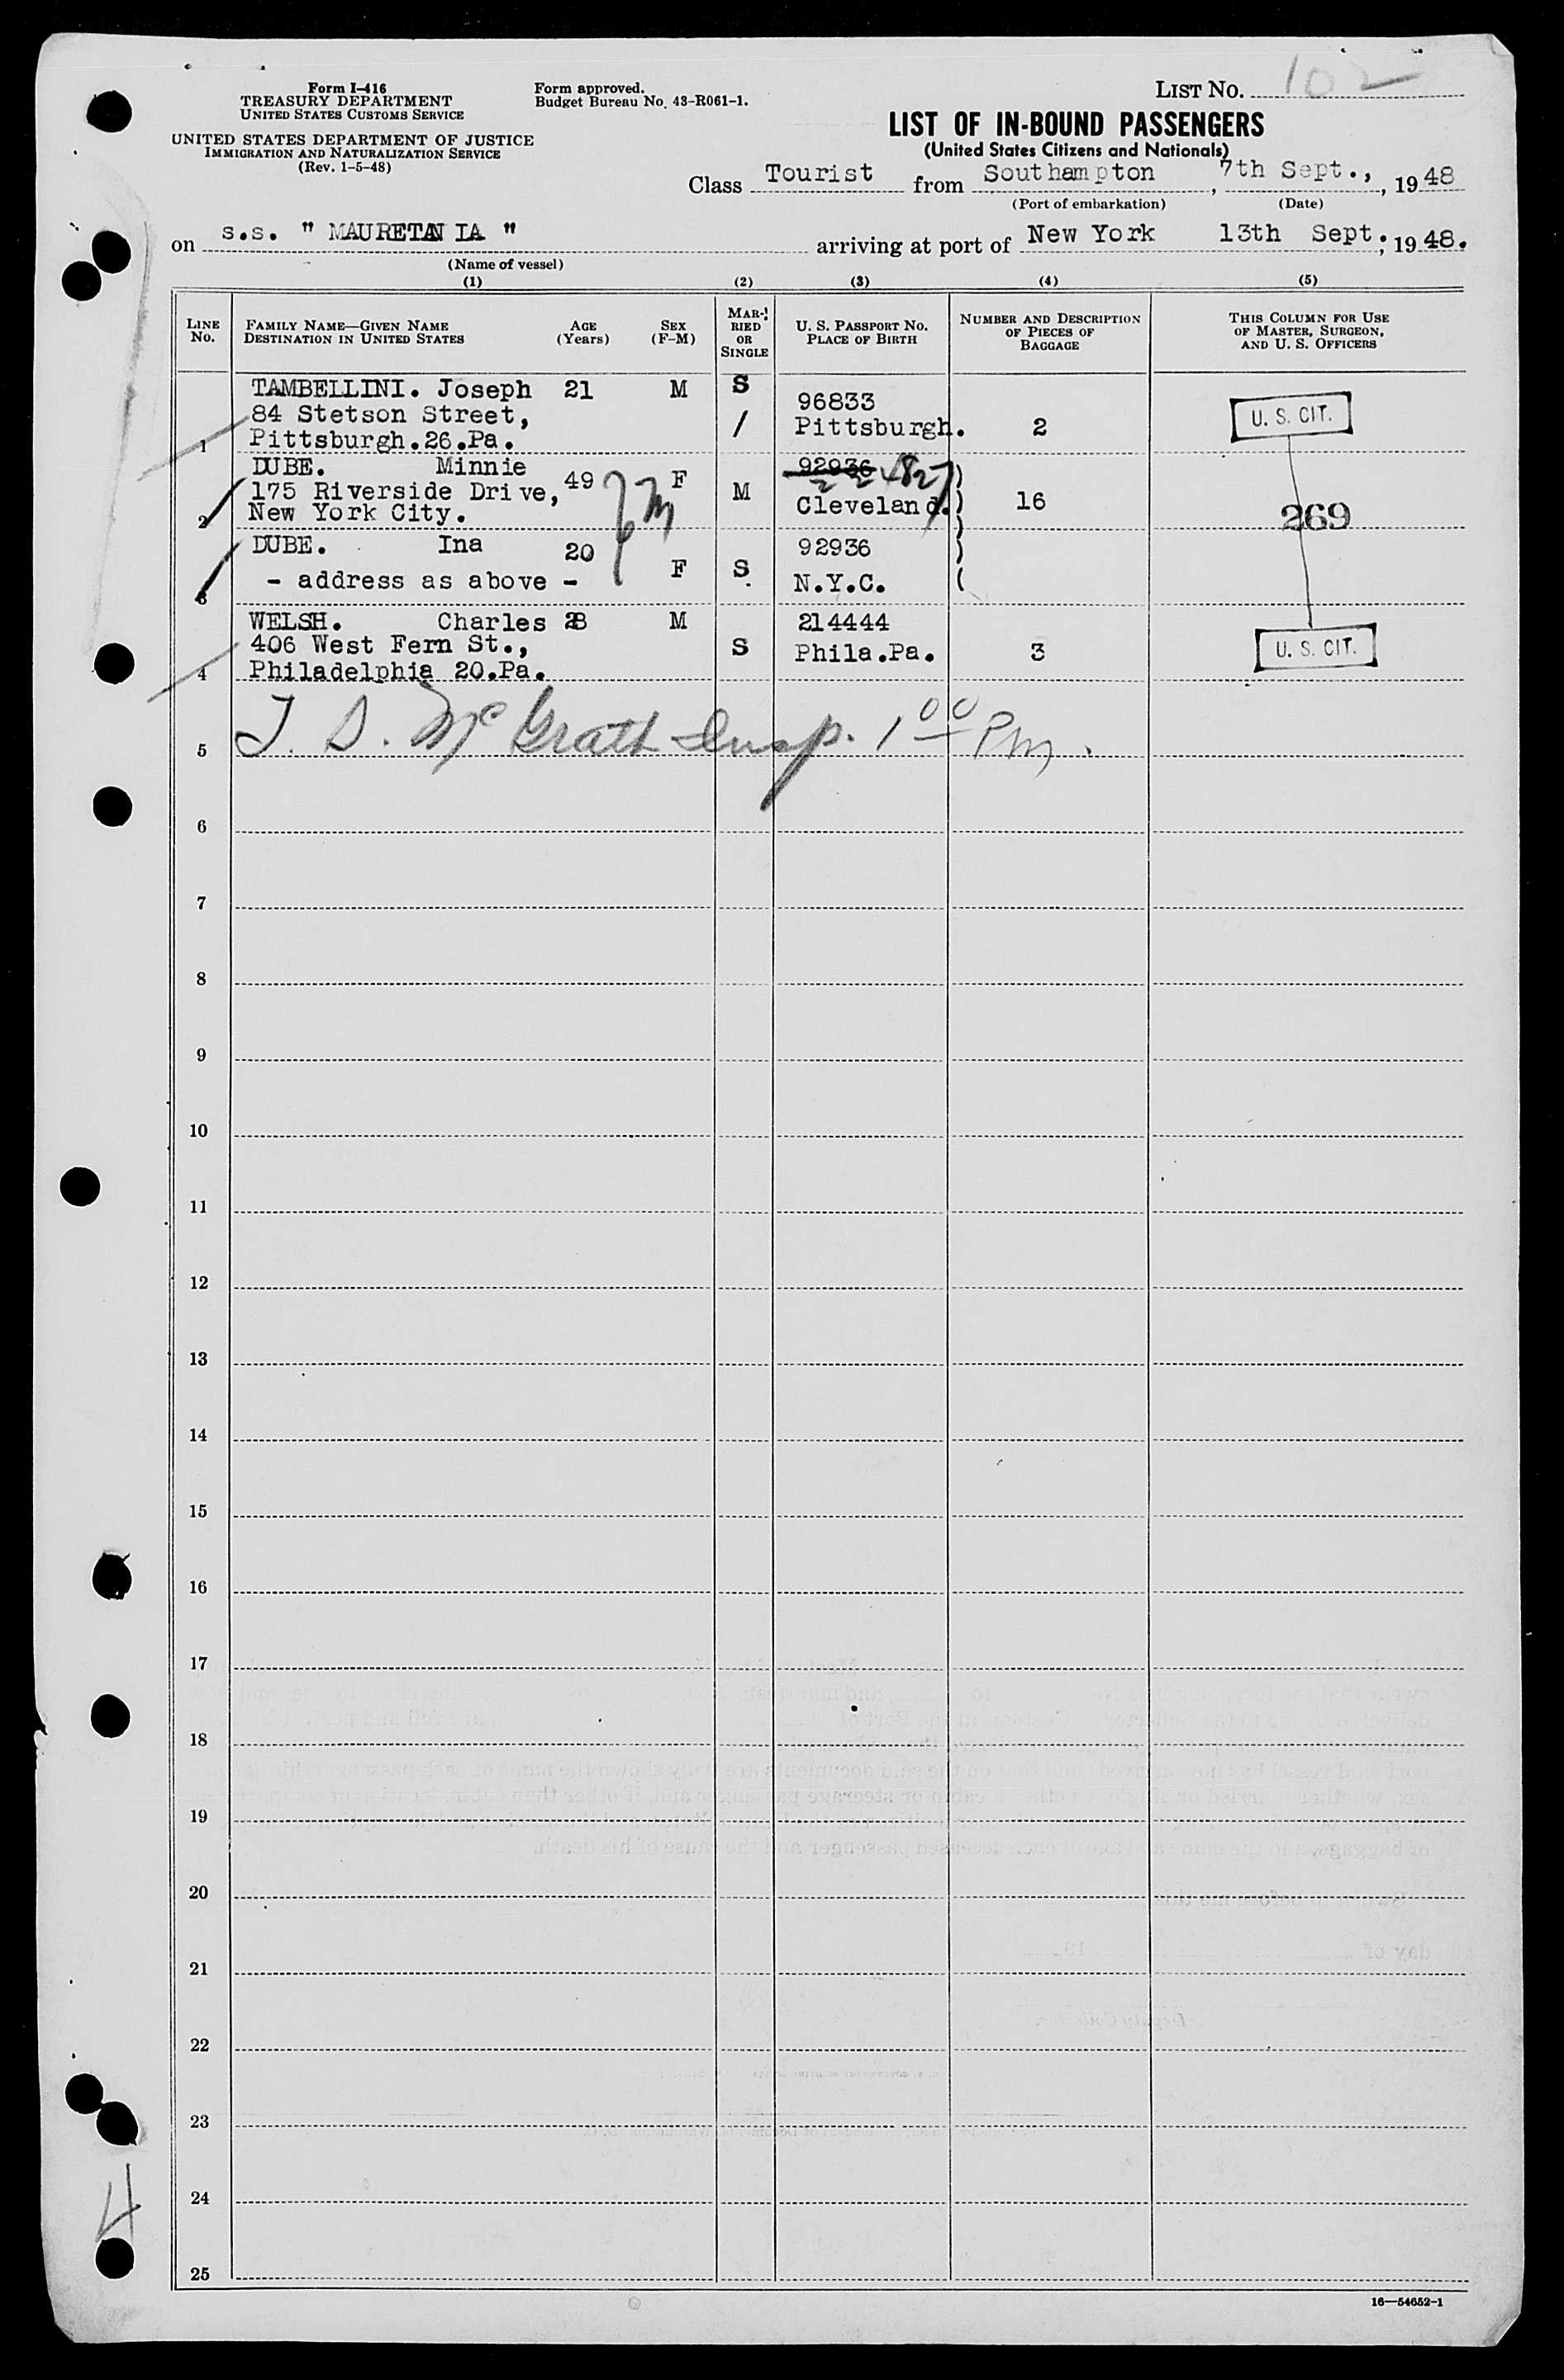 LIST NO. 102
Form I-416
TREASURY DEPARTMENT
UNITED STATES CUSTOMS SERVICE
UNITED STATES DEPARTMENT OF JUSTICE
IMMIGRATION AND NATURALIZATION SERVICE
(Rev. 1-5-48)
Form approved.
Budget Bureau No. 43-R061-1.
LIST OF IN-BOUND PASSENGERS
(United States Citizens and Nationals)
Class Tourist from Southampton, 7th Sept., 1948
(Port of embarkation) (Date)
on s.s. " MAURETANIA " arriving at port of New York 13th Sept., 1948.
(Name of vessel)
(1) (2) (3) (4) (5)
LINE NO.
FAMILY NAME—GIVEN NAME
DESTINATION IN UNITED STATES
AGE (Years)
SEX (F-M)
MARRIED OR SINGLE
U. S. PASSPORT NO.
PLACE OF BIRTH
NUMBER AND DESCRIPTION OF PIECES OF BAGGAGE
THIS COLUMN FOR USE OF MASTER, SURGEON, AND U. S. OFFICERS
TAMBELLINI. Joseph 21 M S 96833
84 Stetson Street, / Pittsburgh. 2 U. S. CIT.
1 Pittsburgh.26.Pa.
DUBE. Minnie 49 F 92936
175 Riverside Drive, M Cleveland. 16
2 New York City. 269
DUBE. Ina 20 F S 92936
3 - address as above - N.Y.C.
WELSH. Charles 28 M 214444
406 West Fern St., S Phila.Pa. 3 U. S. CIT.
4 Philadelphia 20.Pa.
5 T. D. McGrath Insp. 1 00 PM.
6
7
8
9
10
11
12
13
14
15
16
17
18
19
20
21
22
23
24
25
4
16—54652-1